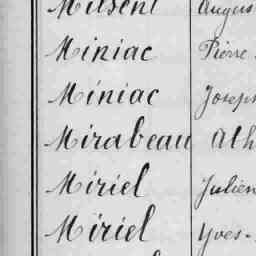 Milsent Augus
Miniac Pierre
Miniac Joseph
Mirabeau Ath
Miriel Julien
Miriel Yves-